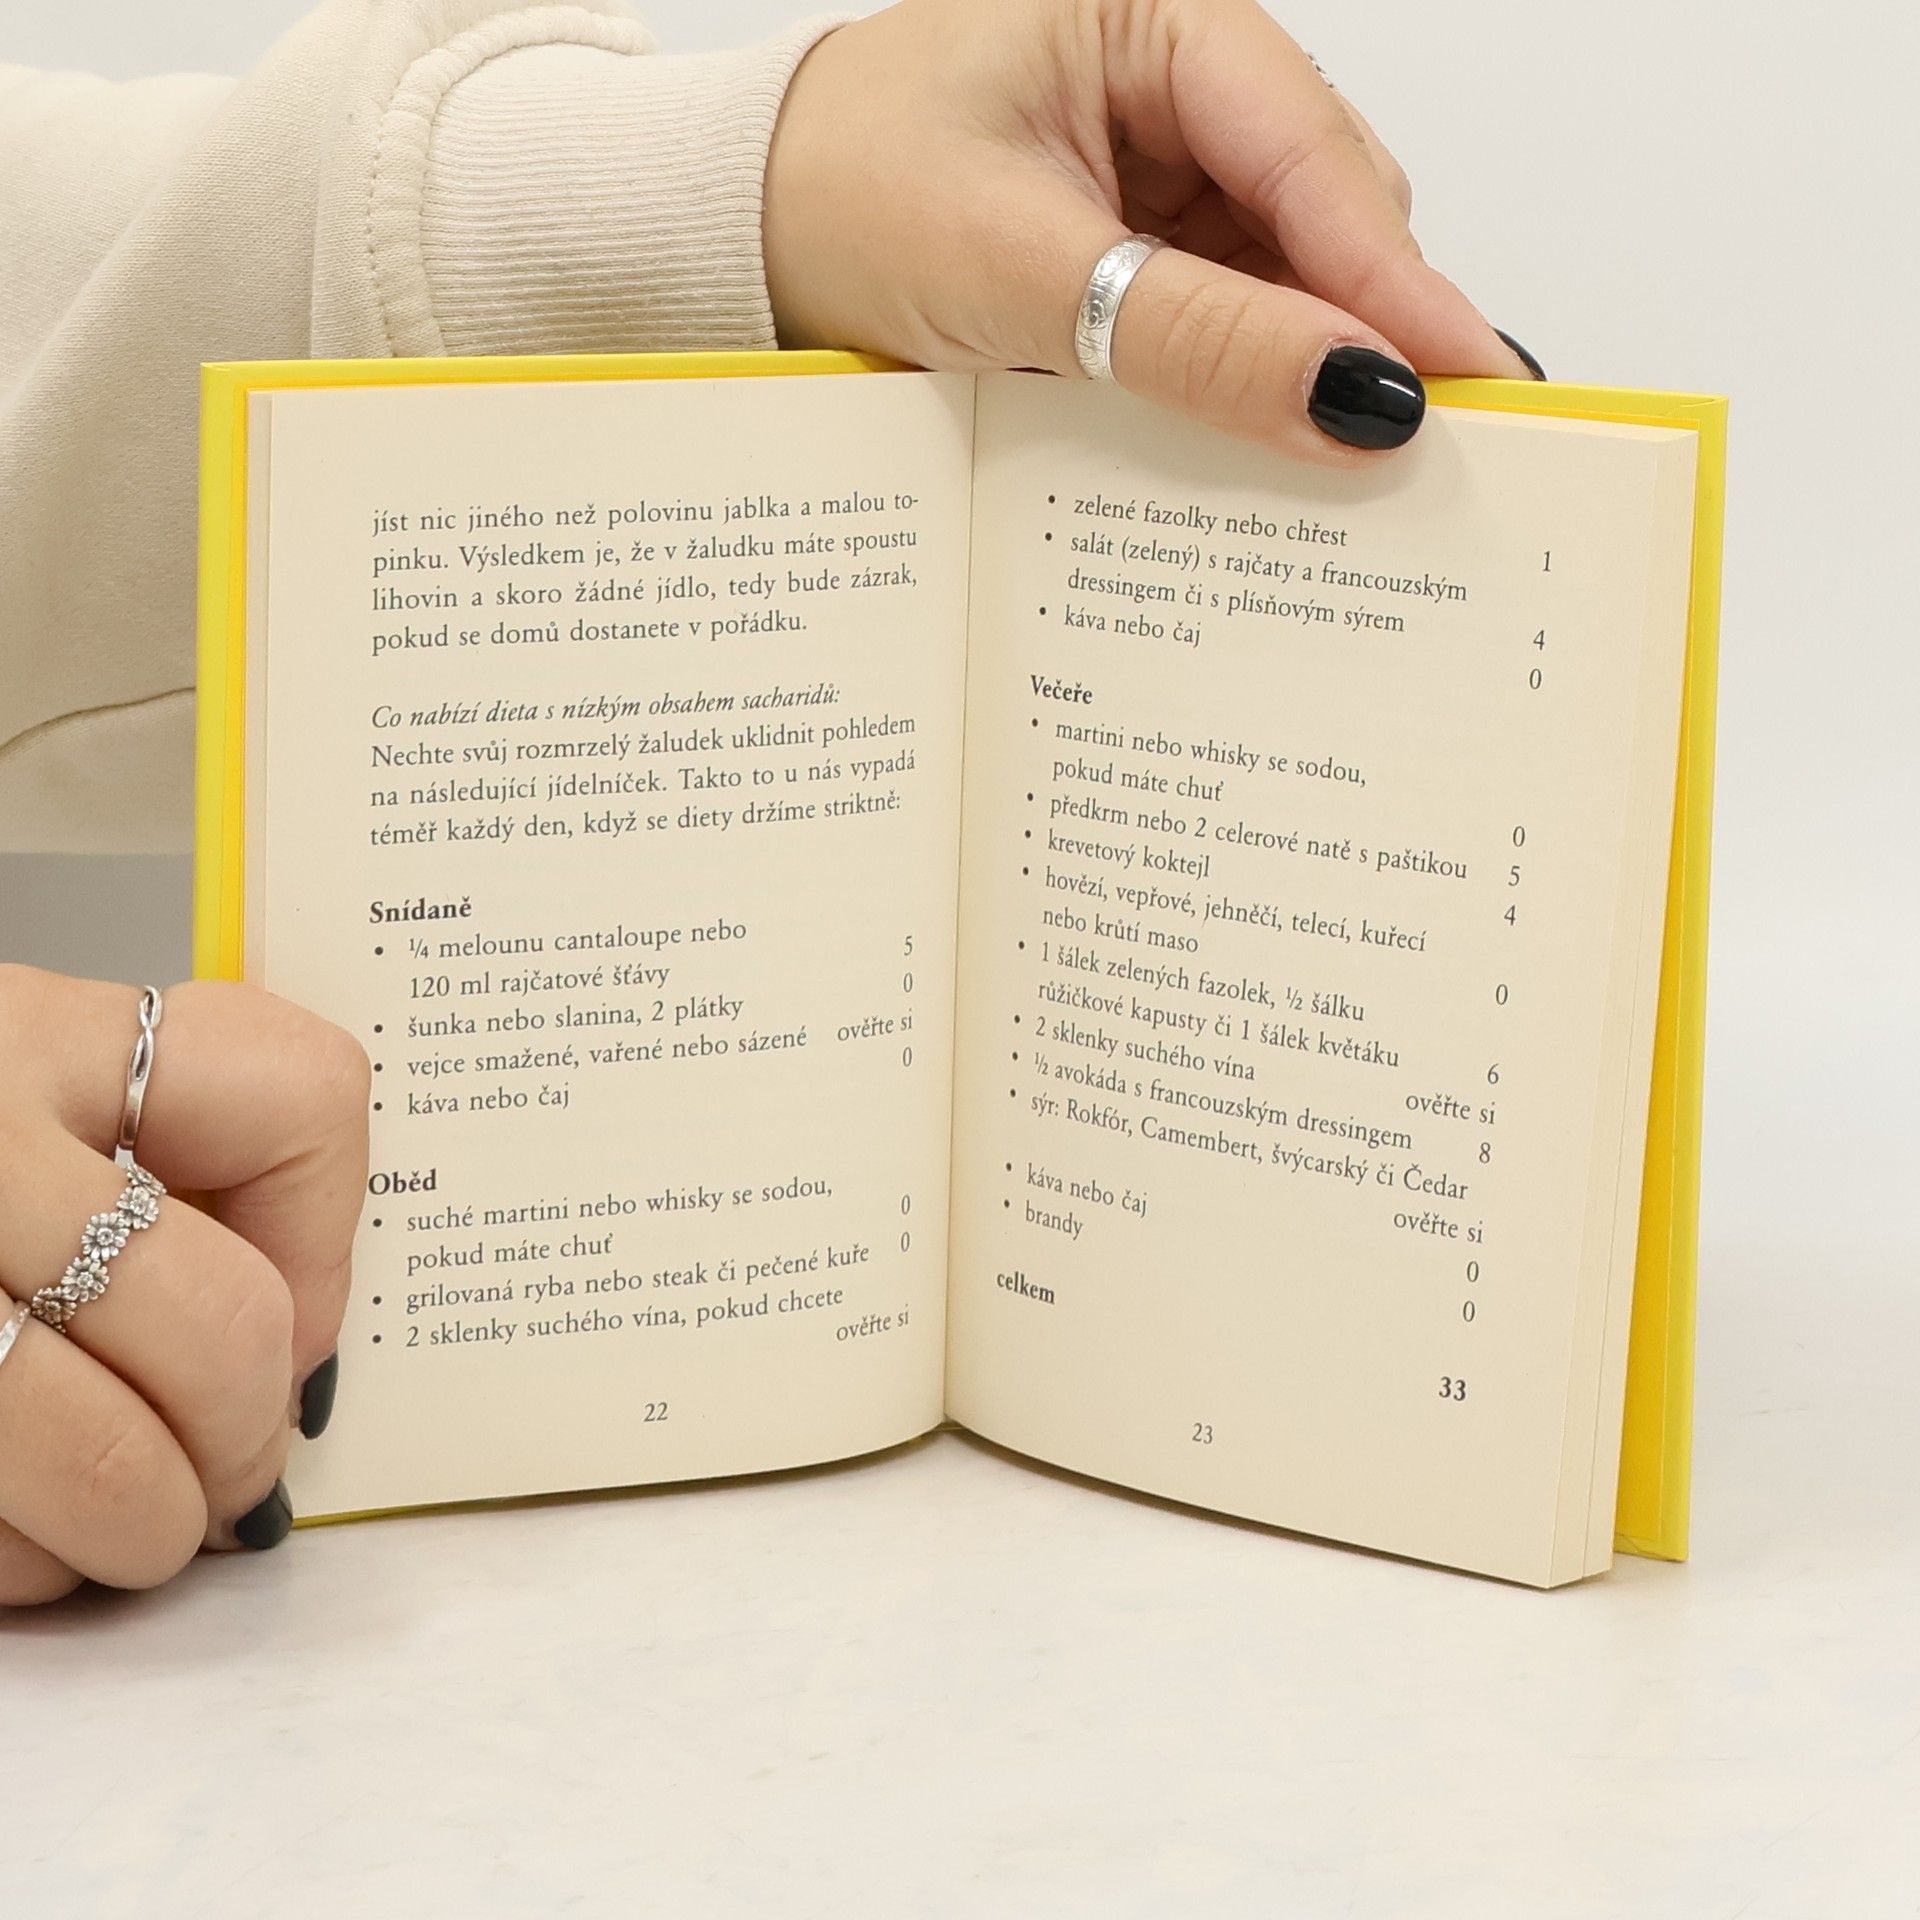 jíst nic jiného než polovinu jablka a malou to-
pinku. Výsledkem je, že v žaludku máte spoustu
lihovin a skoro žádné jídlo, tedy bude zázrak,
pokud se domů dostanete v pořádku.
Co nabízí dieta s nízkým obsahem sacharidů:
Nechte svůj rozmrzelý žaludek uklidnit pohledem
na následující jídelníček. Takto to u nás vypadá
téměř každý den, když se diety držíme striktně:
Snídaně
• ¼ melounu cantaloupe nebo
120 ml rajčatové šťávy 5
• šunka nebo slanina, 2 plátky 0
• vejce smažené, vařené nebo sázené ověřte si
• káva nebo čaj 0
Oběd
• suché martini nebo whisky se sodou,
pokud máte chuť 0
• grilovaná ryba nebo steak či pečené kuře 0
• 2 sklenky suchého vína, pokud chcete
ověřte si
22
• zelené fazolky nebo chřest 1
• salát (zelený) s rajčaty a francouzským
dressingem či s plísňovým sýrem 4
• káva nebo čaj 0
Večeře
• martini nebo whisky se sodou,
pokud máte chuť 0
• předkrm nebo 2 celerové natě s paštikou 5
• krevetový koktejl 4
• hovězí, vepřové, jehněčí, telecí, kuřecí
nebo krůtí maso 0
• 1 šálek zelených fazolek, ½ šálku
růžičkové kapusty či 1 šálek květáku 6
• 2 sklenky suchého vína ověřte si
• ½ avokáda s francouzským dressingem 8
• sýr: Rokfór, Camembert, švýcarský či Čedar
ověřte si
• káva nebo čaj 0
• brandy 0
celkem 33
23